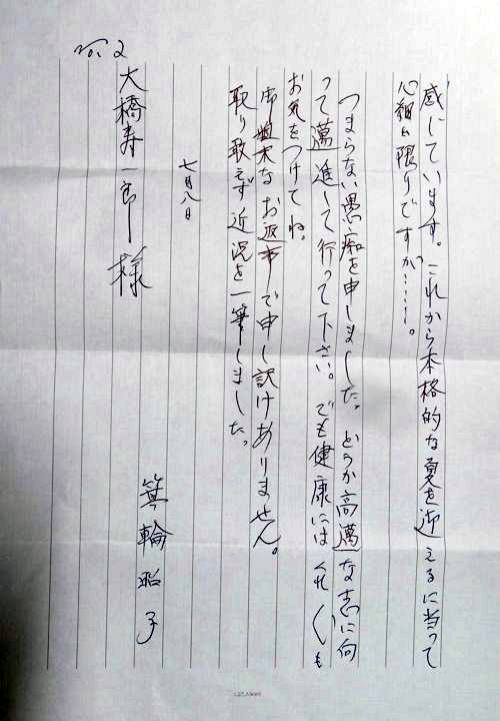 No.2
感じています。これから本格的な夏を迎えるに当って
心細い限りですが……。
つまらない愚痴を申しました。どうか高邁な志に向
って邁進して行って下さい。でも健康にはくれ〲も
お気をつけてね。
お粗末なお返事で申し訳けありません。
取り敢えず近況を一筆しました。
七月八日
箕輪昭子
大橋寿一郎様